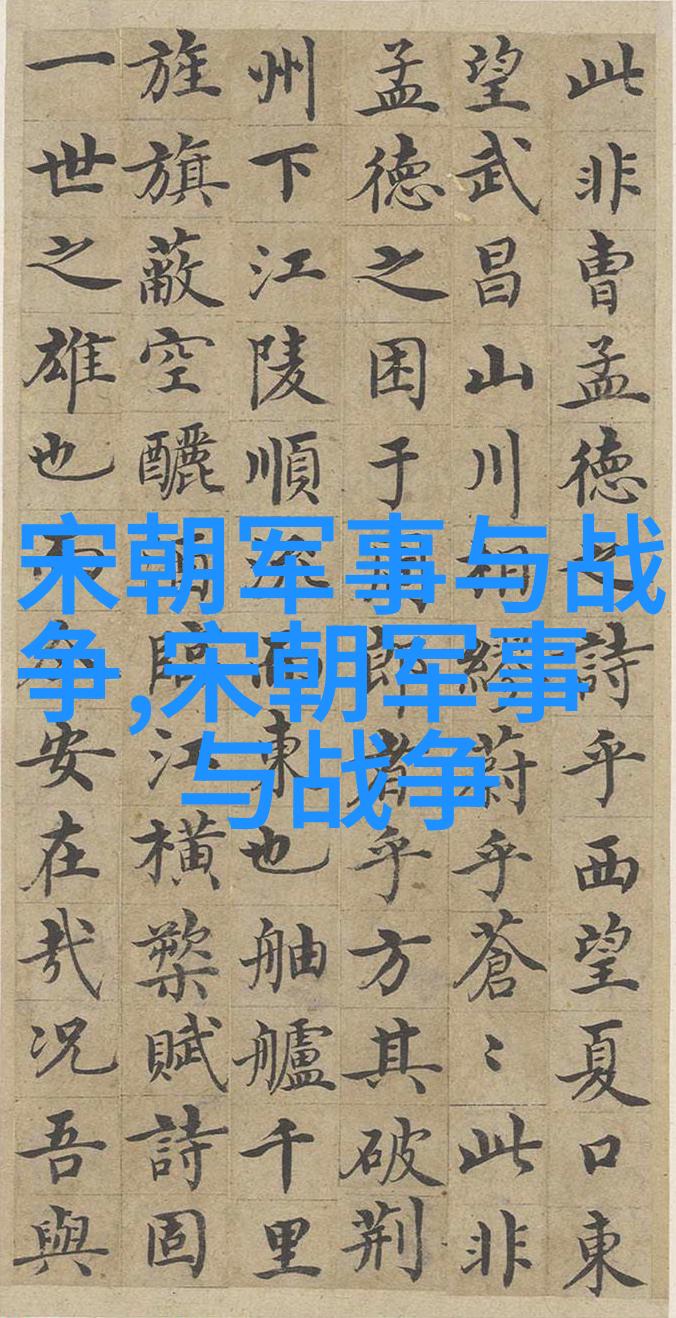 此非曹孟德之詩乎西望夏口東
望武昌山川相繆蔚乎蒼〻此非
孟德之困于周郎者乎方其破荆
州下江陵順流而東也舳艫千里
旌旗蔽空釃酒臨江横槊賦詩固
一世之雄也而今安在哉况吾與
宋朝军事与战
争,宋朝军事
与战争